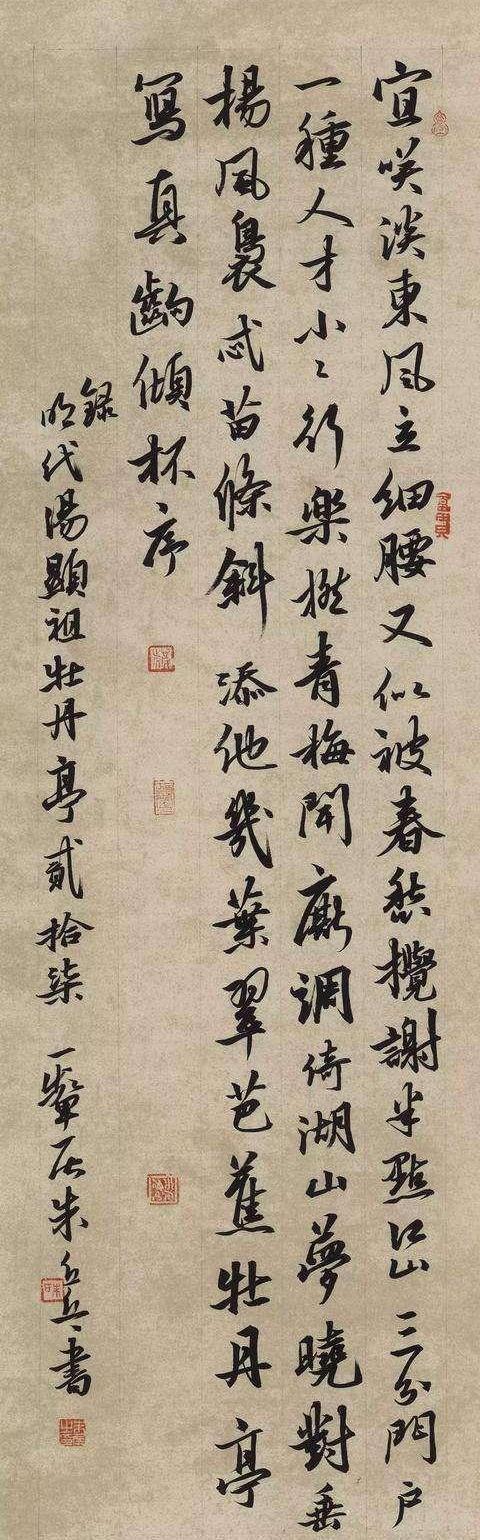 宜咲淡東風立細腰又似被春愁攪謝半點江山三分門户
一種人才小〻行樂撚青梅閒廝調倚湖山夢曉對垂
楊風裊忒苗條斜添他幾葉翠芭蕉牡丹亭
寫真齣傾杯序
録明代湯顯祖牡丹亭貳拾柒一居朱書